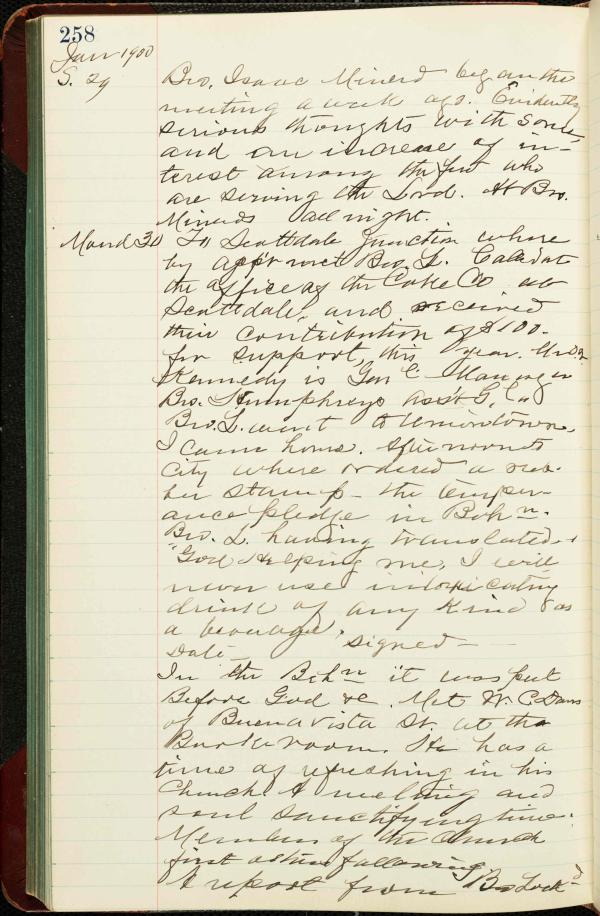 258
Jan 1900
S. 29
Bro. Isaac Minerd began the
meeting a week ago. Evidently
serious thoughts with some
and an increase of in-
terest among the few who
are serving the Lord. At Bro.
Minerds all night.
Mond 30 To Scottdale Junction where
by app't met Bro. L. Called at
the office of the Coke Co at
Scottdale, and received
their contribution of $100-
for support, this year. Mr
Kennedy is Gen'l Manager
Bro. Humphreys ass't G.
Bro. L. went to Uniontown.
I came home. Afternoon to
city where ordered a rub-
ber stamp - the temper-
ance pledge in Boh n.
Bro. L. having translated.
"God Helping me, I will
never use intoxicating
drink of any kind as
a beverage," signed -
Date -
In the Boh n it was put
Before God &c. Met W. C. Davis
of Buena Vista St. at the
Book room. He has a
time of refreshing in his
Church. A melting and
soul sanctifying time.
Members of the Church
first others following.
A report from Bro Lock